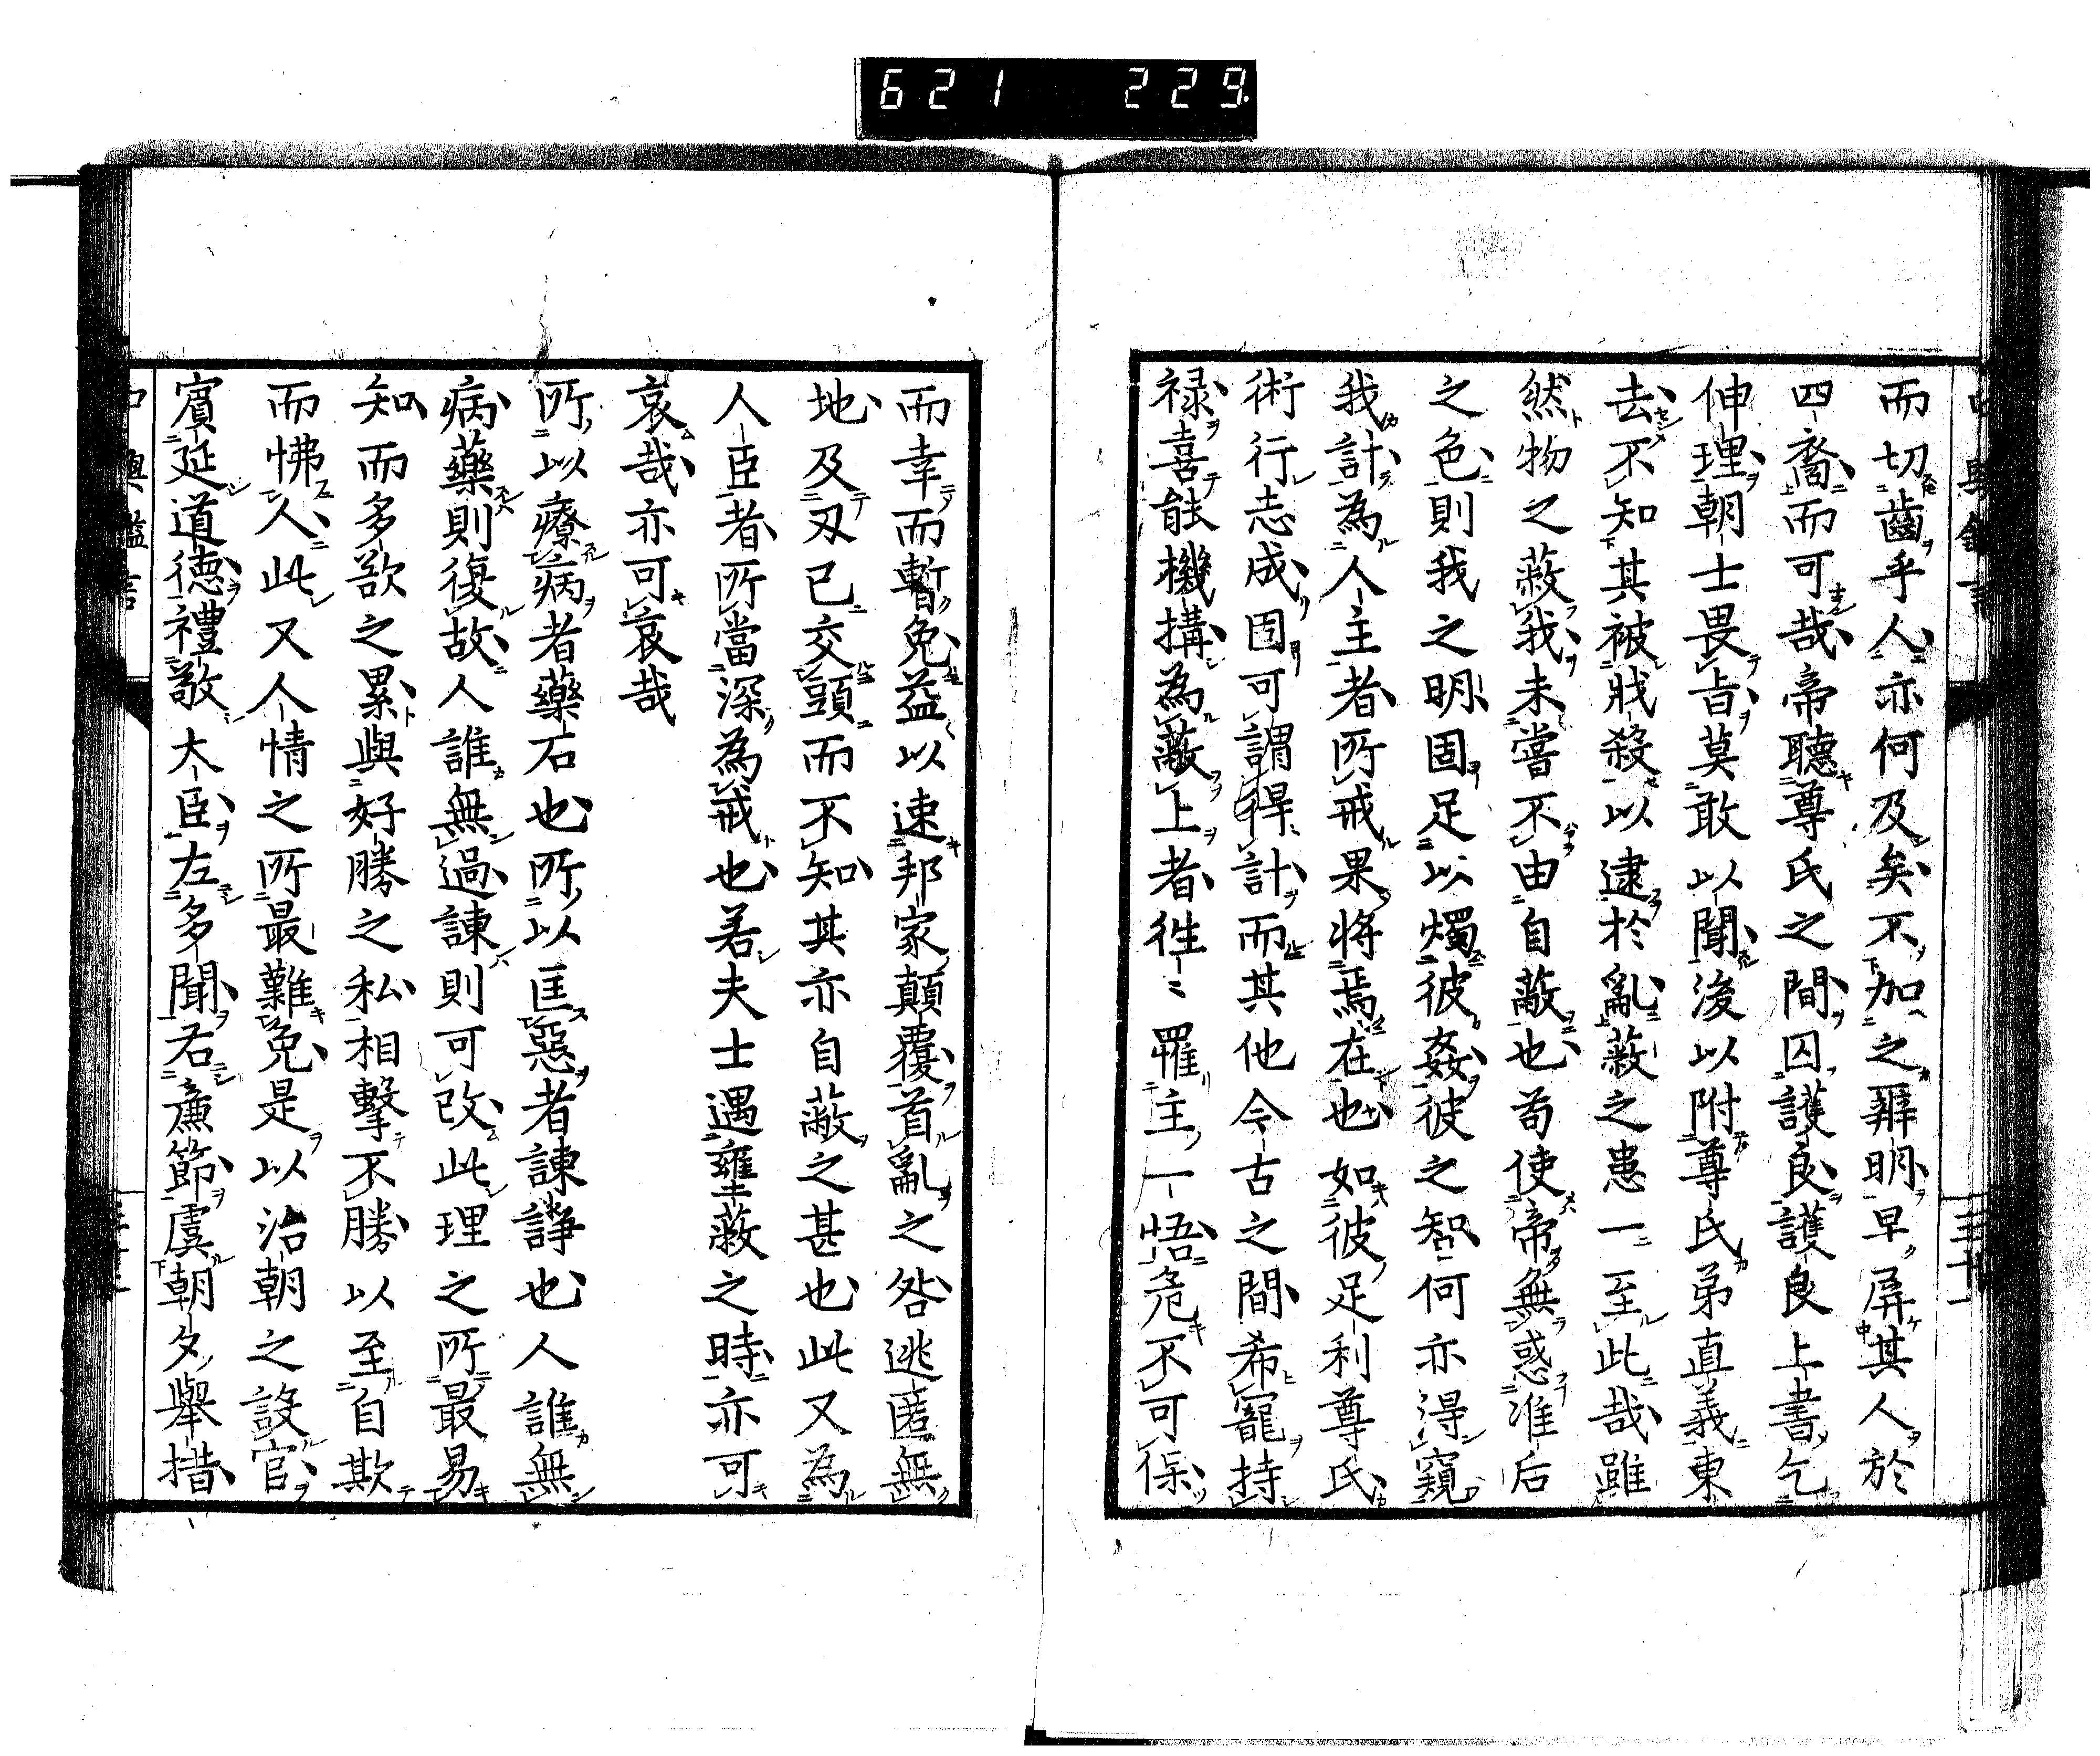 621 229.
而切齒乎人亦何及矣不加之辨明早屏其人於
四裔而可哉帝聽尊氏之間囚護良護良上書乞
伸理朝士畏旨莫敢以聞後以附尊氏弟直義東
去不知其被戕殺以逮於亂蔽之患一至此哉雖
然物之蔽我未嘗不由自蔽也苟使帝無惑准后
之色則我之明固足以燭彼姦彼之智何亦得窺
我計為人主者所戒果將焉在也如彼足利尊氏
術行志成固可謂得計而其他今古之間希寵持
祿喜能機搆為蔽上者徃〻罹主一悟危不可保
而幸而暫免益以速邦家顛覆首亂之咎逃匿無
地及刄已交頭而不知其亦自蔽之甚也此又為
人臣者所當深為戒也若夫士遇壅蔽之時亦可
哀哉亦可哀哉
所以療病者藥石也所以匡惡者諫諍也人誰無
病藥則復故人誰無過諫則可改此理之所最易
知而多欲之累與好勝之私相擊不勝以至自欺
而怫人此又人情之所最難免是以治朝之設官
賓延道德禮敬大臣左多聞右廉節虞朝夕舉措